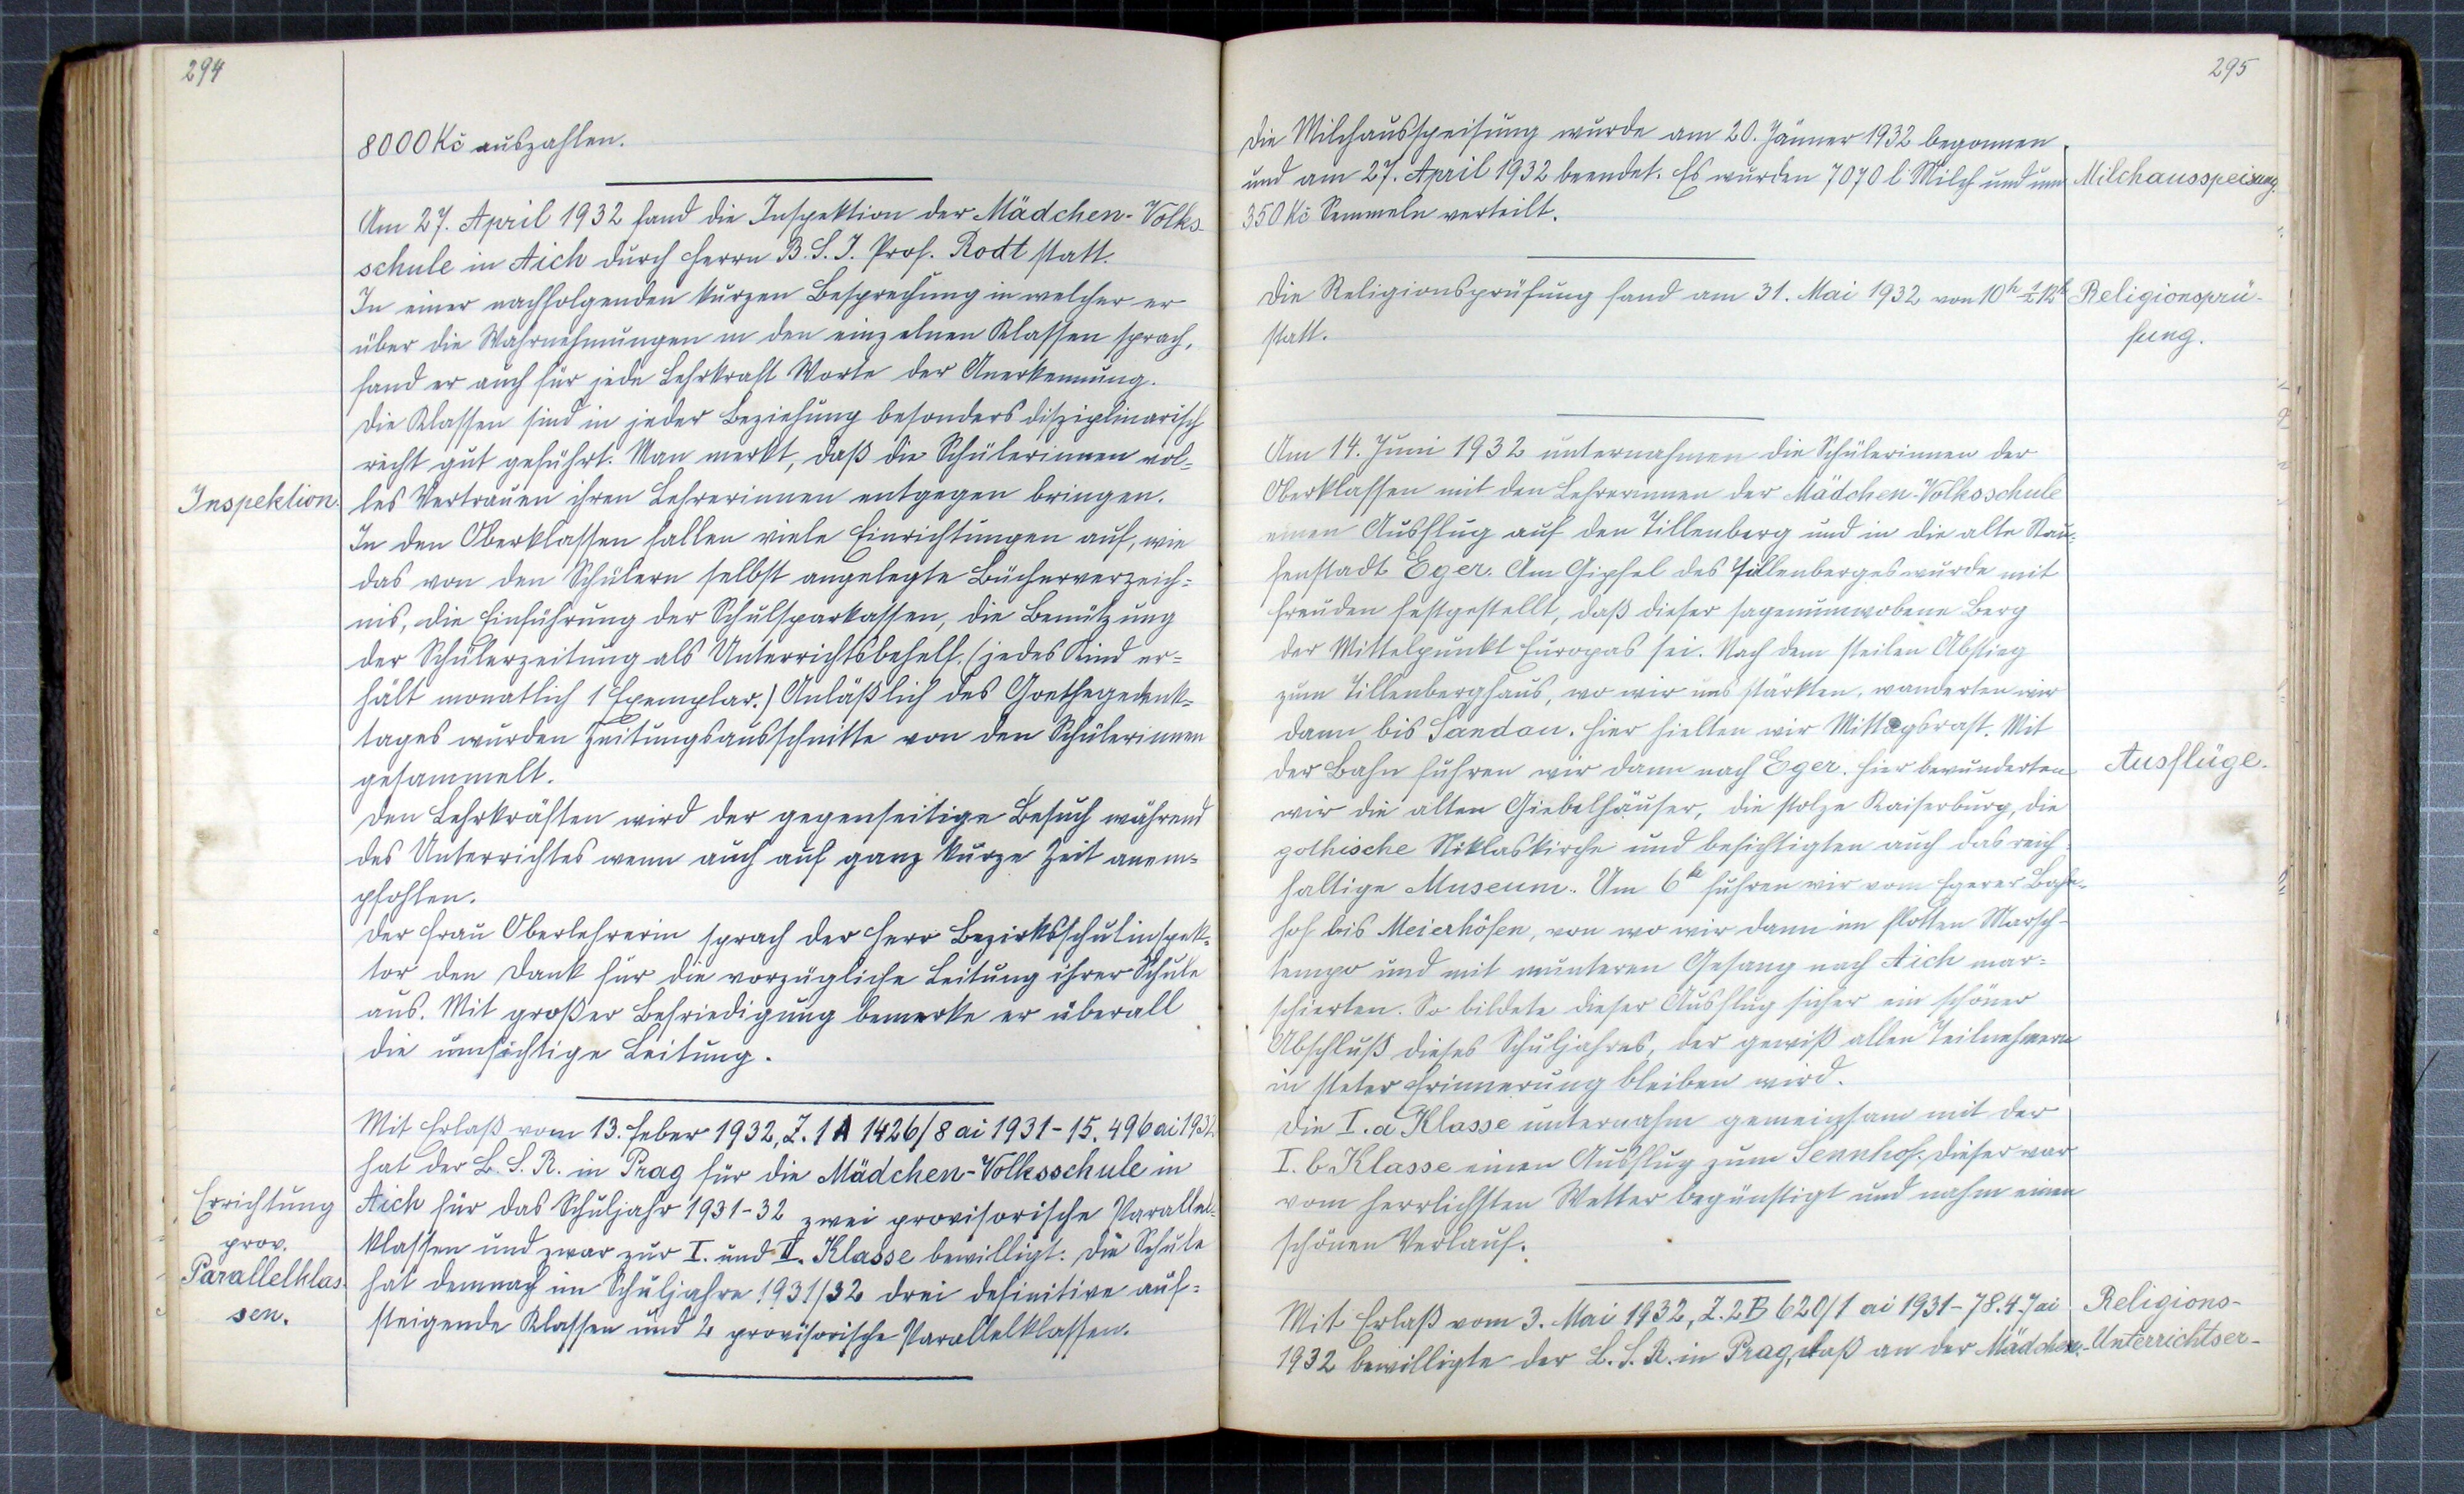 294
8000 Kč auszahlen.
Am 27. April 1932 fand die Inspektion der Mädchen-Volks-
schule in Aich durch Herrn B. S. I. Prof. Rodt statt.
In einer nachfolgenden kurzen Besprechung in welcher er
über die Wahrnehmungen in den einzelnen Klassen sprach,
fand er auch für jede Lehrkraft Worte der Anerkennung.
Die Klassen sind in jeder Beziehung besonders disziplinarisch
recht gut geführt. Man merkt, daß die Schülerinnen vol-
Inspektion.
les Vertrauen ihren Lehrerinnen entgegen bringen.
In den Oberklassen fallen viele Einrichtungen auf, wie
das von den Schülern selbst angelegte Bücherverzeich=
nis, die Einführung der Schulsparkassen, die Benützung
der Schülerzeitung als Unterrichtsbehelf. (jedes Kind er=
hält monatlich 1 Exemplar.) Anläßlich des Goethegedenk=
tages wurden Zeitungsausschnitte von den Schülerinnen
gesammelt.
Den Lehrkräften wird der gegenseitige Besuch während
des Unterrichtes wenn auch auf ganz kurze Zeit anem=
pfohlen.
Der Frau Oberlehrerin sprach der Herr Bezirksschulinspek=
tor den Dank für die vorzügliche Leitung ihrer Schule
aus. Mit großer Befriedigung bemerke er überall
die umsichtige Leitung.
Mit Erlaß vom 13. Feber 1932, Z. 1 A 1426/8 ai 1931-15.496 ai 1932
hat der L. S. R. in Prag für die Mädchen-Volksschule in
Errichtung
prov.
Parallelklas-
sen.
Aich für das Schuljahr 1931-32 zwei provisorische Parallel=
klassen und zwar zur I. und II. Klasse bewilligt. Die Schule
hat demnach im Schuljahre 1931/32 drei definitive auf=
steigende Klassen und 2 provisorische Parallelklassen.
295
Die Milchausspeisung wurde am 20. Jänner 1932 begonnen
und am 27. April 1932 beendet. Es wurden 7070 l Milch und um
Milchausspeisung.
350 Kč Semmeln verteilt.
Die Religionsprüfung fand am 31. Mai 1932 von 10h-½12h
statt.
Religionsprü-
fung.
Am 14. Juni 1932 unternahmen die Schülerinnen der
Oberklassen mit den Lehrerinnen der Mädchen-Volksschule
einen Ausflug auf den Tillenberg und in die alte Stau=
fenstadt Eger. Am Gipfel des Tillenberges wurde mit
Freuden festgestellt, daß dieser sagenumwobene Berg
der Mittelpunkt Europas sei. Nach dem steilen Abstieg
zum Tillenberghaus, wo wir uns stärkten, wanderten wir
dann bis Sandau. Hier hielten wir Mittagsrast. Mit
der Bahn fuhren wir dann nach Eger. Hier bewunderten
Ausflüge.
wir die alten Giebelhäuser, die stolze Kaiserburg, die
gothische Niklaskirche und besichtigten auch das reich=
haltige Museum. Um 6h fuhren wir vom Egerer Bahn-
hof bis Meierhöfen, von wo wir dann im flotten Marsch-
tempo und mit munteren Gesang nach Aich mar=
schierten. So bildete dieser Ausflug sicher ein schöner
Abschluß dieses Schuljahres, der gewiß allen Teilnehmern
in steter Erinnerung bleiben wird.
Die I. a Klasse unternahm gemeinsam mit der
I. b Klasse einen Ausflug zum Sennhof. Dieser war
vom herrlichsten Wetter begünstigt und nahm einen
schönen Verlauf.
Mit Erlaß vom 3. Mai 1932, Z. 2 B 620/1 ai 1931-78.4.7 ai
1932 bewilligte der L. S. R. in Prag, daß an der Mädchen-
Religions-
Unterrichtser-